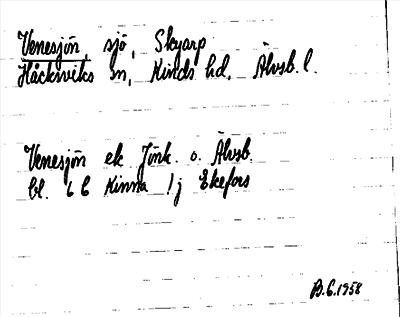 Venesjön, sjö, Skyarp
Håcksviks sn, Kinds hd, Älvsb. l.
Venesjön ek Jönk. o. Älvsb.
bl. 6 C Kinna 1j Ekefors
B.G. 1958